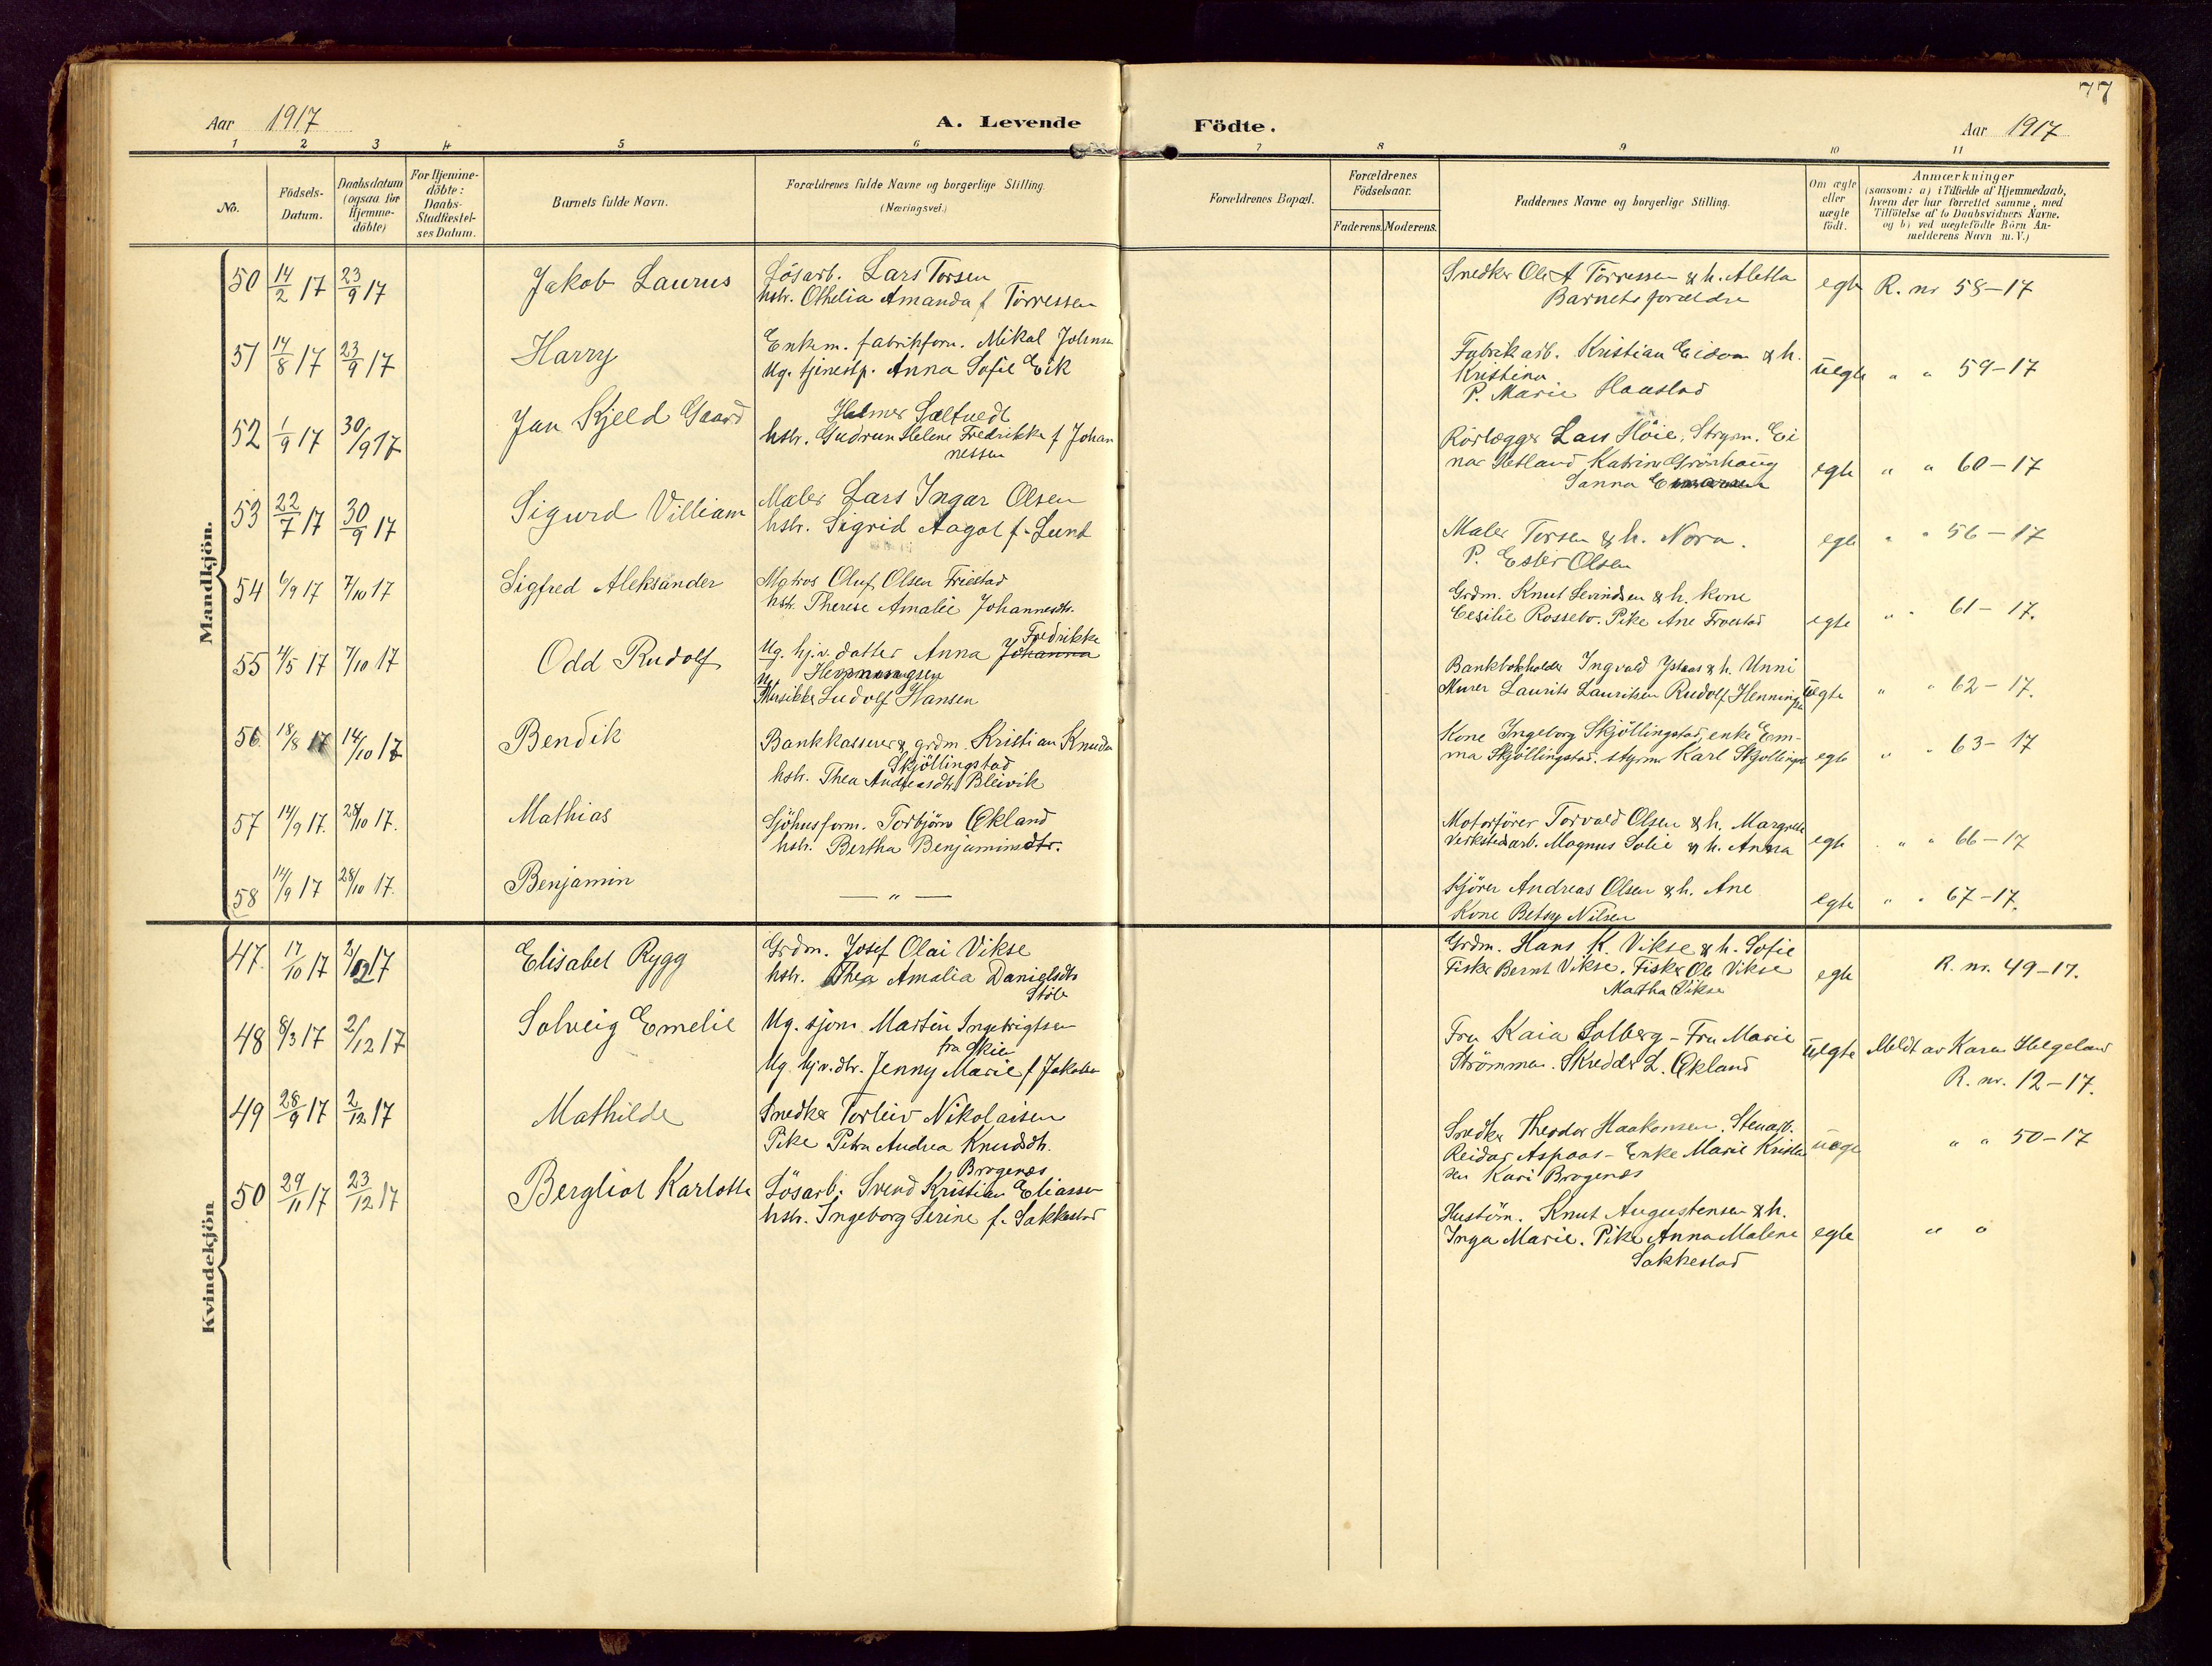 77
Aar 1917
A. Levende Födte.
Aar 1917
1 2 3 4 5 6 7 8 9 10 11
No.
Födsels-
Datum.
Daabsdatum
(ogsaa for
Hjemme-
döbte)
For Hjemme-
döbte:
Daabs-
Stadfæstel-
ses Datum.
Barnets fulde Navn.
Forældrenes fulde Navne og borgerlige Stilling.
(Næringsvei.)
Forældrenes Bopæl.
Forældrenes
Födselsaar.
Faderens. Moderens.
Faddernes Navne og borgerlige Stilling.
Om ægte
eller
uægte
födt.
Anmærkninger
(saasom: a) i Tilfælde af Hjemmedaab,
hvem der har forrettet samme, med
Tilföielse af to Daabsvidners Navne,
og b) ved uægtefödte Börn An-
melderens Navn m. V.)
Mandkjön.
50 14/2 17 23/9 17 Jakob Laurus
Lösarb. Lars Torsen
hstr. Othelia Amanda f Törressen
Snedker Ole A Törressen & h. Aletta
Barnets forældre
egte R. nr 58-17
51 14/8 17 23/9 17 Harry
Enkem. fabrikform. Mikal Johnsen
Ug. tjenestp. Anna Sofie Eik
Fabrikarb. Kristian & h.
Kristina
P. Marie Haustad
uegte " " 59-17
52 1/9 17 30/9 17 Jan Kjeld Gaard
Halmer Saltvedt
hstr. Gudrun Helene Fredrikke f Johan
nessen
Rörlegger Lars Höie, Strym. Ei
nar Hetland, Katrine Grönhaug
Sanna
egte " " 60-17
53 22/7 17 30/9 17 Sigurd Villiam
Maler Lars Ingar Olsen
hstr. Sigrid Aagot f. Lund
Maler Torsen & h. Nora.
P. Ester Olsen
egte " " 56-17
54 6/9 17 7/10 17 Sigfred Aleksander
Matros Oluf Olsen Friestad
hstr. Therese Amalie Johannesdtr.
Grdm. Knut Sevindsen & h. kone
Cesilie Rossebø. Pike Ane Froestad
egte " " 61-17.
55 4/5 17 7/10 17 Odd Rudolf
Ug. hj.v. datter Anna Johanna Fredrikke
Henningsen
Ug. Musikker Ludolf Hansen
Bankbokholder Ingvald Ystaas & h. Unni
Murer Laurits Lauritsen Rudolf Henningsen
uegte " " 62-17.
56. 18/8 17 14/10 17 Bendik
Bankkasserer & grdm. Kristian Knudsen
Skjöllingstad
hstr. Thea Andreasdtr. Bleivik
Kone Ingeborg Skjöllingstad, enke Em-
ma Skjöllingstad. styrm Karl Skjollingstad
egte " " 63-17
57 14/9 17. 28/10 17. Mathias
Sjöhusform. Torbjörn Økland
hstr. Bertha Benjaminsdtr.
Motorförer Torvald Olsen & h. Margrete
Verkstedarb. Magnus Solie & h. Anna
egte " " 66-17
58 14/9 17 28/10 17. Benjamin
— " —
Kjörer Andreas Olsen & h. Ane
Kone Betsy Nilsen
egte " " 67-17.
Kvindekjön
47. 17/10 17 2/12 17 Elisabet Rygg
Grdm. Josef Olai Vikse
hstr. Thea Amalia Danielsdtr
Stöle
Grdm. Hans K. Vikse & h. Sofie
Fisker Bernt Vikse. Fisker Ole Vikse
Martha Vikse
egte R. nr. 49-17.
48 8/3 17 2/12 17 Solveig Emelie
Ug. sjöm. Martin Ingebrigtsen
fra Skie
Ug. hj.v.dtr. Jenny Marie f Jakobsen
Fru Kaia Solberg - Fru Marie
Strömmen. Skredder L. Økland
uegte Meldt av Karen Helgeland
R. nr. 12-17.
49 28/9 17 2/12 17 Mathilde
Snedker Torleiv Nikolaisen
Pike Petra Andrea Knudsdtr.
Brogenæs
Snedker Theodor Haakonsen. Stenarb.
Reidar Aspaas - Enke Marie Kristen
sen Kari Brogenæs
uegte " " 50-17
50 29/11 17 23/12 17 Bergliot Karlotte
Lösarb. Svend Kristian Eliassen
hstr. Ingeborg Serine f. Sakkestad
Hustöm. Knut Augustensen & h.
Inga Marie. Pike Anna Malene
Sakkestad
egte " "